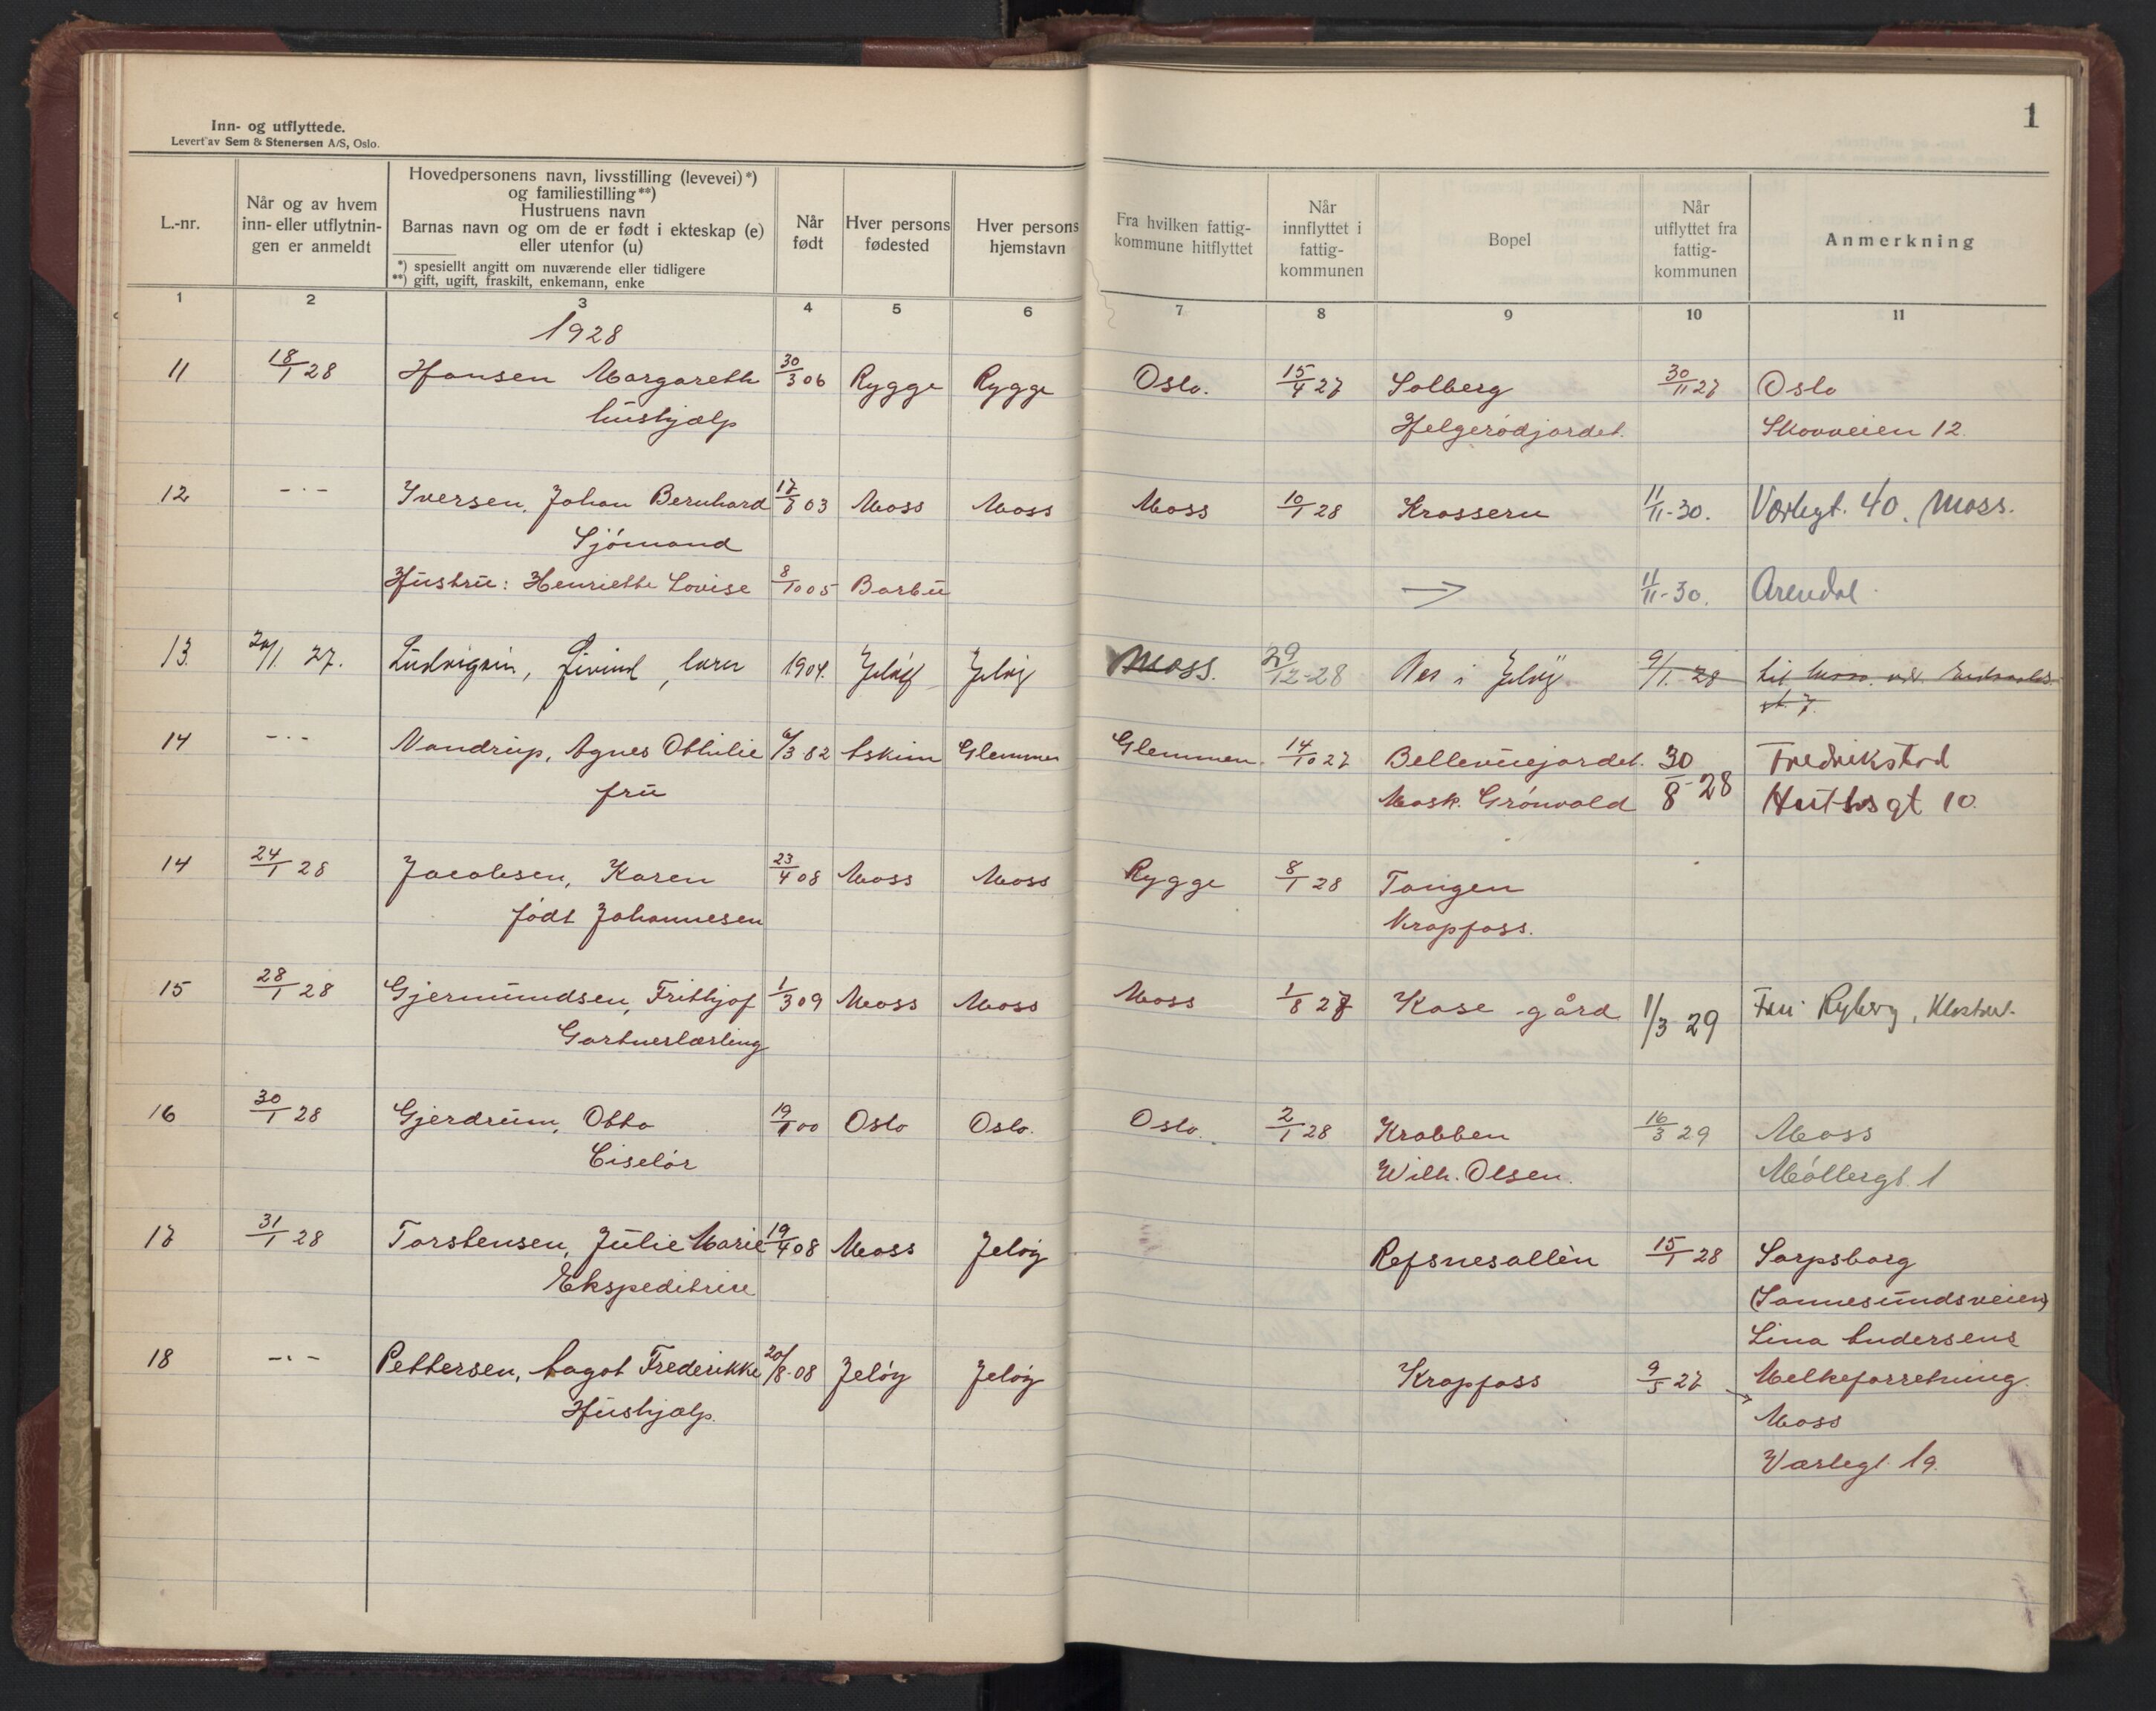 Inn- og utflyttede.
Levert av Sem & Stenersen A/S, Oslo.
1
L.-nr.
Når og av hvem
inn- eller utflytnin-
gen er anmeldt
Hovedpersonens navn, livsstilling (levevei)*)
og familiestilling**)
Hustruens navn
Barnas navn og om de er født i ekteskap (e)
eller utenfor (u)
*) spesiellt angitt om nuværende eller tidligere
**) gift, ugift, fraskilt, enkemann, enke
Når
født
Hver persons
fødested
Hver persons
hjemstavn
Fra hvilken fattig-
kommune hitflyttet
Når
innflyttet i
fattig-
kommunen
Bopel
Når
utflyttet fra
fattig-
kommunen
Anmerkning
1 2 3 4 5 6 7 8 9 10 11
1928
11 18/1 28 Hansen Margareth 30/3 06 Rygge Rygge Oslo. 15/4 27 Solberg 30/11 27 Oslo
hushjælp Helgerødjordet. Skovveien 12.
12 -·- Iversen, Johan Bernhard 17/7 03 Moss Moss Moss 10/1 28 Krossern 11/11-30. Værlegt. 40. Moss.
Sjómand
Hustru: Henriette Lovise 8/10 05 Barbu → 11/11-30. Arendal
13. 27. Ludvigsen, Eivind, 1904. Jeløy Jeløy Moss. 29/12-28 Nes i Jeløy 9/1-28 til Moss.
14 -·- Nandrup, Agnes Othilie 6/3 82 Askim Glemmen Glemmen. 14/10 27 Bellevuejordet. 30/8-28 Fredrikstad
fru Mask. Grónvold gt 10.
14 24/1 28 Jacobsen, Karen 23/4 08 Moss Moss Rygge 8/1 28 Tangen
født Johannesen Krapfoss.
15 28/1 28 Gjermundsen, Frithjof 1/3 09 Moss Moss Moss 1/8 27 Kase gård 1/3 29 Fru Ryberg,
Gartnerlærling
16 30/1 28 Gjerdrum, Otto 19/1 00 Oslo Oslo. Oslo. 2/1 28 Krabben 16/3 29 Moss
Ciselør Wilh. Olsen. Móllergt. 1
17 31/1 28 Torstensen, Julie Marie 19/4 08 Moss Jeløy Refsnesallèn 15/1 28 Sarpsborg
Ekspeditrise (Sannesundsveien)
Lina Andersens
18 -·- Pettersen, Aagot Frederikke 20/8-08 Jeløy Jeløy Krapfoss 9/5 27 Melkeforretning.
Hushjælp. → Moss
Værlegt. 19.